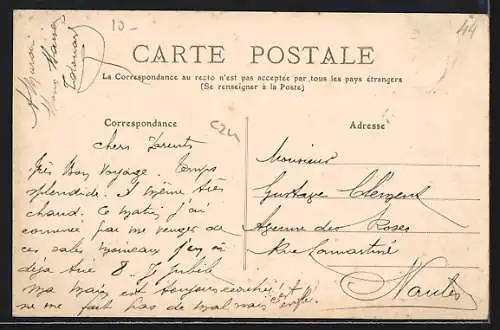 10-
44
CARTE POSTALE
La Correspondance au recto n'est pas acceptée par tous les pays étrangers
(Se renseigner à la Poste)
Correspondance
C24
chers Parents
Très bon voyage. Temps
splendide. Il même très
chaud. Ce matin j'ai
commencé par me venger de
ces sales moineaux j'en ai
déjà tué 8. Je jubile
ma main est toujours
ne me fait pas de mal mais
Edouard
Adresse
Monsieur
Gustave Clément
Avenue des Roses
Rue Lamartine
Nantes